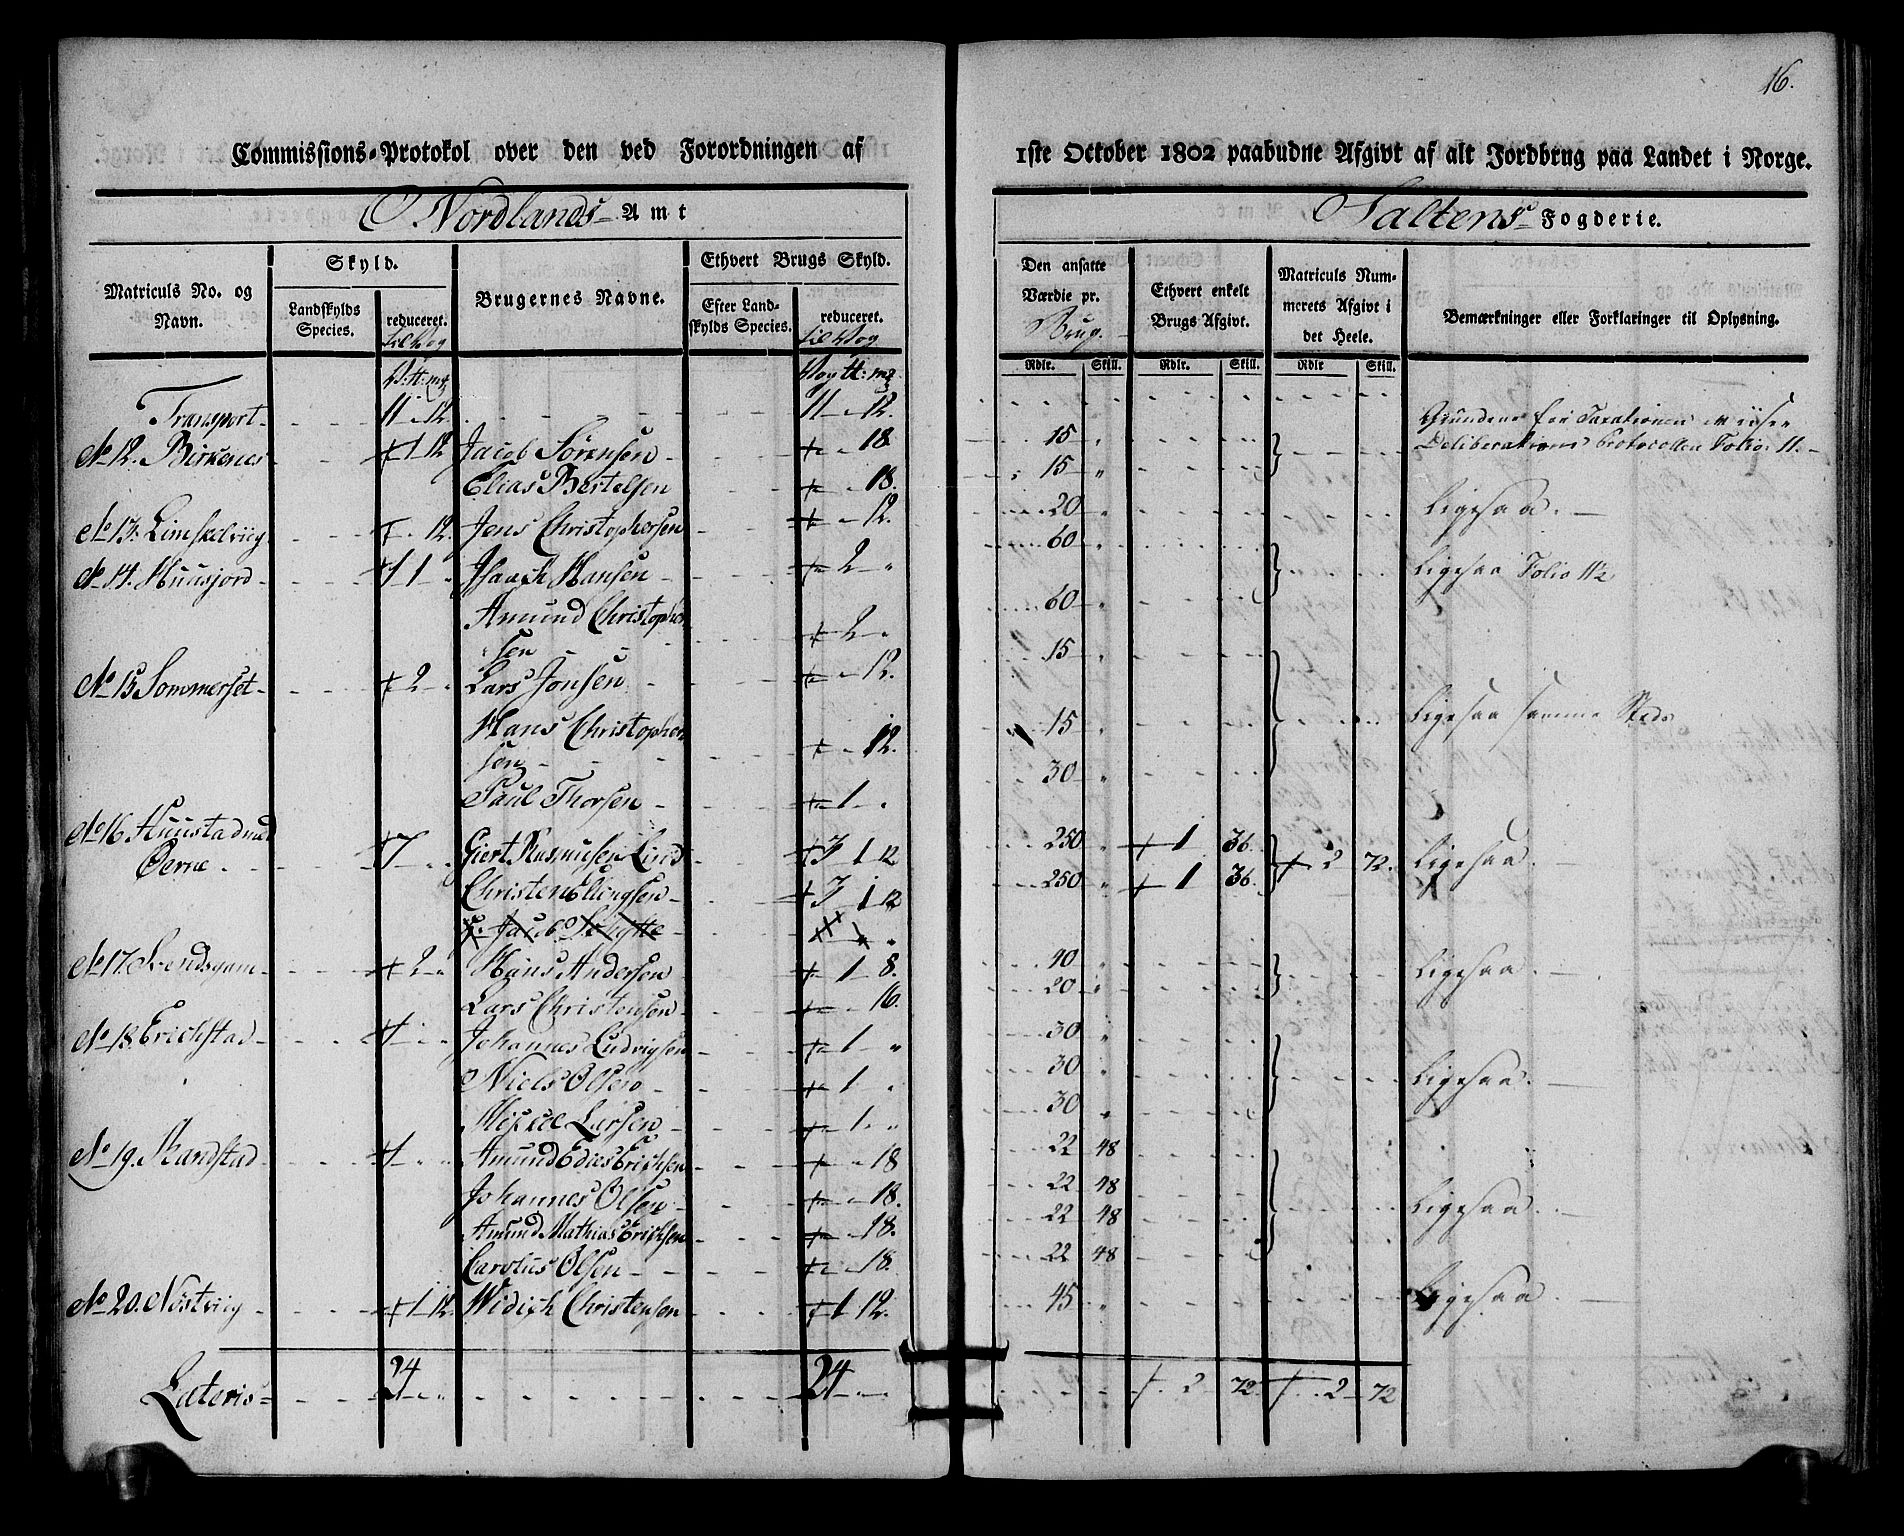 16.
Commissions-Protokol over den ved Forordningen af 1ste October 1802 paabudne Afgivt af alt Jordbrug paa Landet i Norge.
Nordlands Amt
Saltens Fogderie.
Matriculs No. og Navn.
Skyld.
Landskylds Species.
reduceret.
til Vog
Brugernes Navne.
Ethvert Brugs Skyld.
Efter Landskylds Species.
reduceret.
til Vog
Den ansatte Værdie pr. Brug.
Ethvert enkelt Brugs Afgivt.
Matriculs Nummerets Afgivt i det Heele.
Bemærkninger eller Forklaringer til Oplysning.
Rdlr. Skill. Rdlr. Skill. Rdlr Skill.
Transport 11 - 12. 11 - 12.
No 12. Birkenes 1 12 Jacob Sörensen 18 15 Grundene for Taxationen viiser
Deliberations Protocollen Folio 11.
Elias Bertelsen 18. 15 "
No 13. Limskelviig 12. Jens Christophersen 12. 20 Ligesaa.
No 14. Huusjord 1 Isaach Hansen 2 " 60 Ligesaa Folio 11½
Amund Christopher
sen 2 60
No 15 Sommerset 2 Lars Jonsen 12. 15 Ligesaa samme Steds
Hans Christopher
sen 12. 15
Paul Thorsen 1 30
No 16 Huustad med
Öerne 7 Giert Rasmusen Lind 3 1 12 250 1 36 2 72. Ligesaa.
Christen Ellingsen 3 1 12 250 1 36
Jacob Schytte
No 17. Svendsgam 2 Hans Andersen 1 8. 40 Ligesaa.
Lars Christensen 16. 20
No 18. Erichstad Johannes Ludvigsen 1 " 30
Niels Olsen 1 30 Ligesaa.
Michel Larsen 1 30
No 19. Randstad Amund Edies Erichsen 18 22 48
Johannes Olsen 18. 22 48 Ligesaa.
Amund Mathias Erichsen 18. 22 48
Carolus Olsen 18. 22 48
No 20. Nöstviig 1 12. Widich Christensen 1 12. 45 Ligesaa.
Lateris 24 24 2 72 2 72